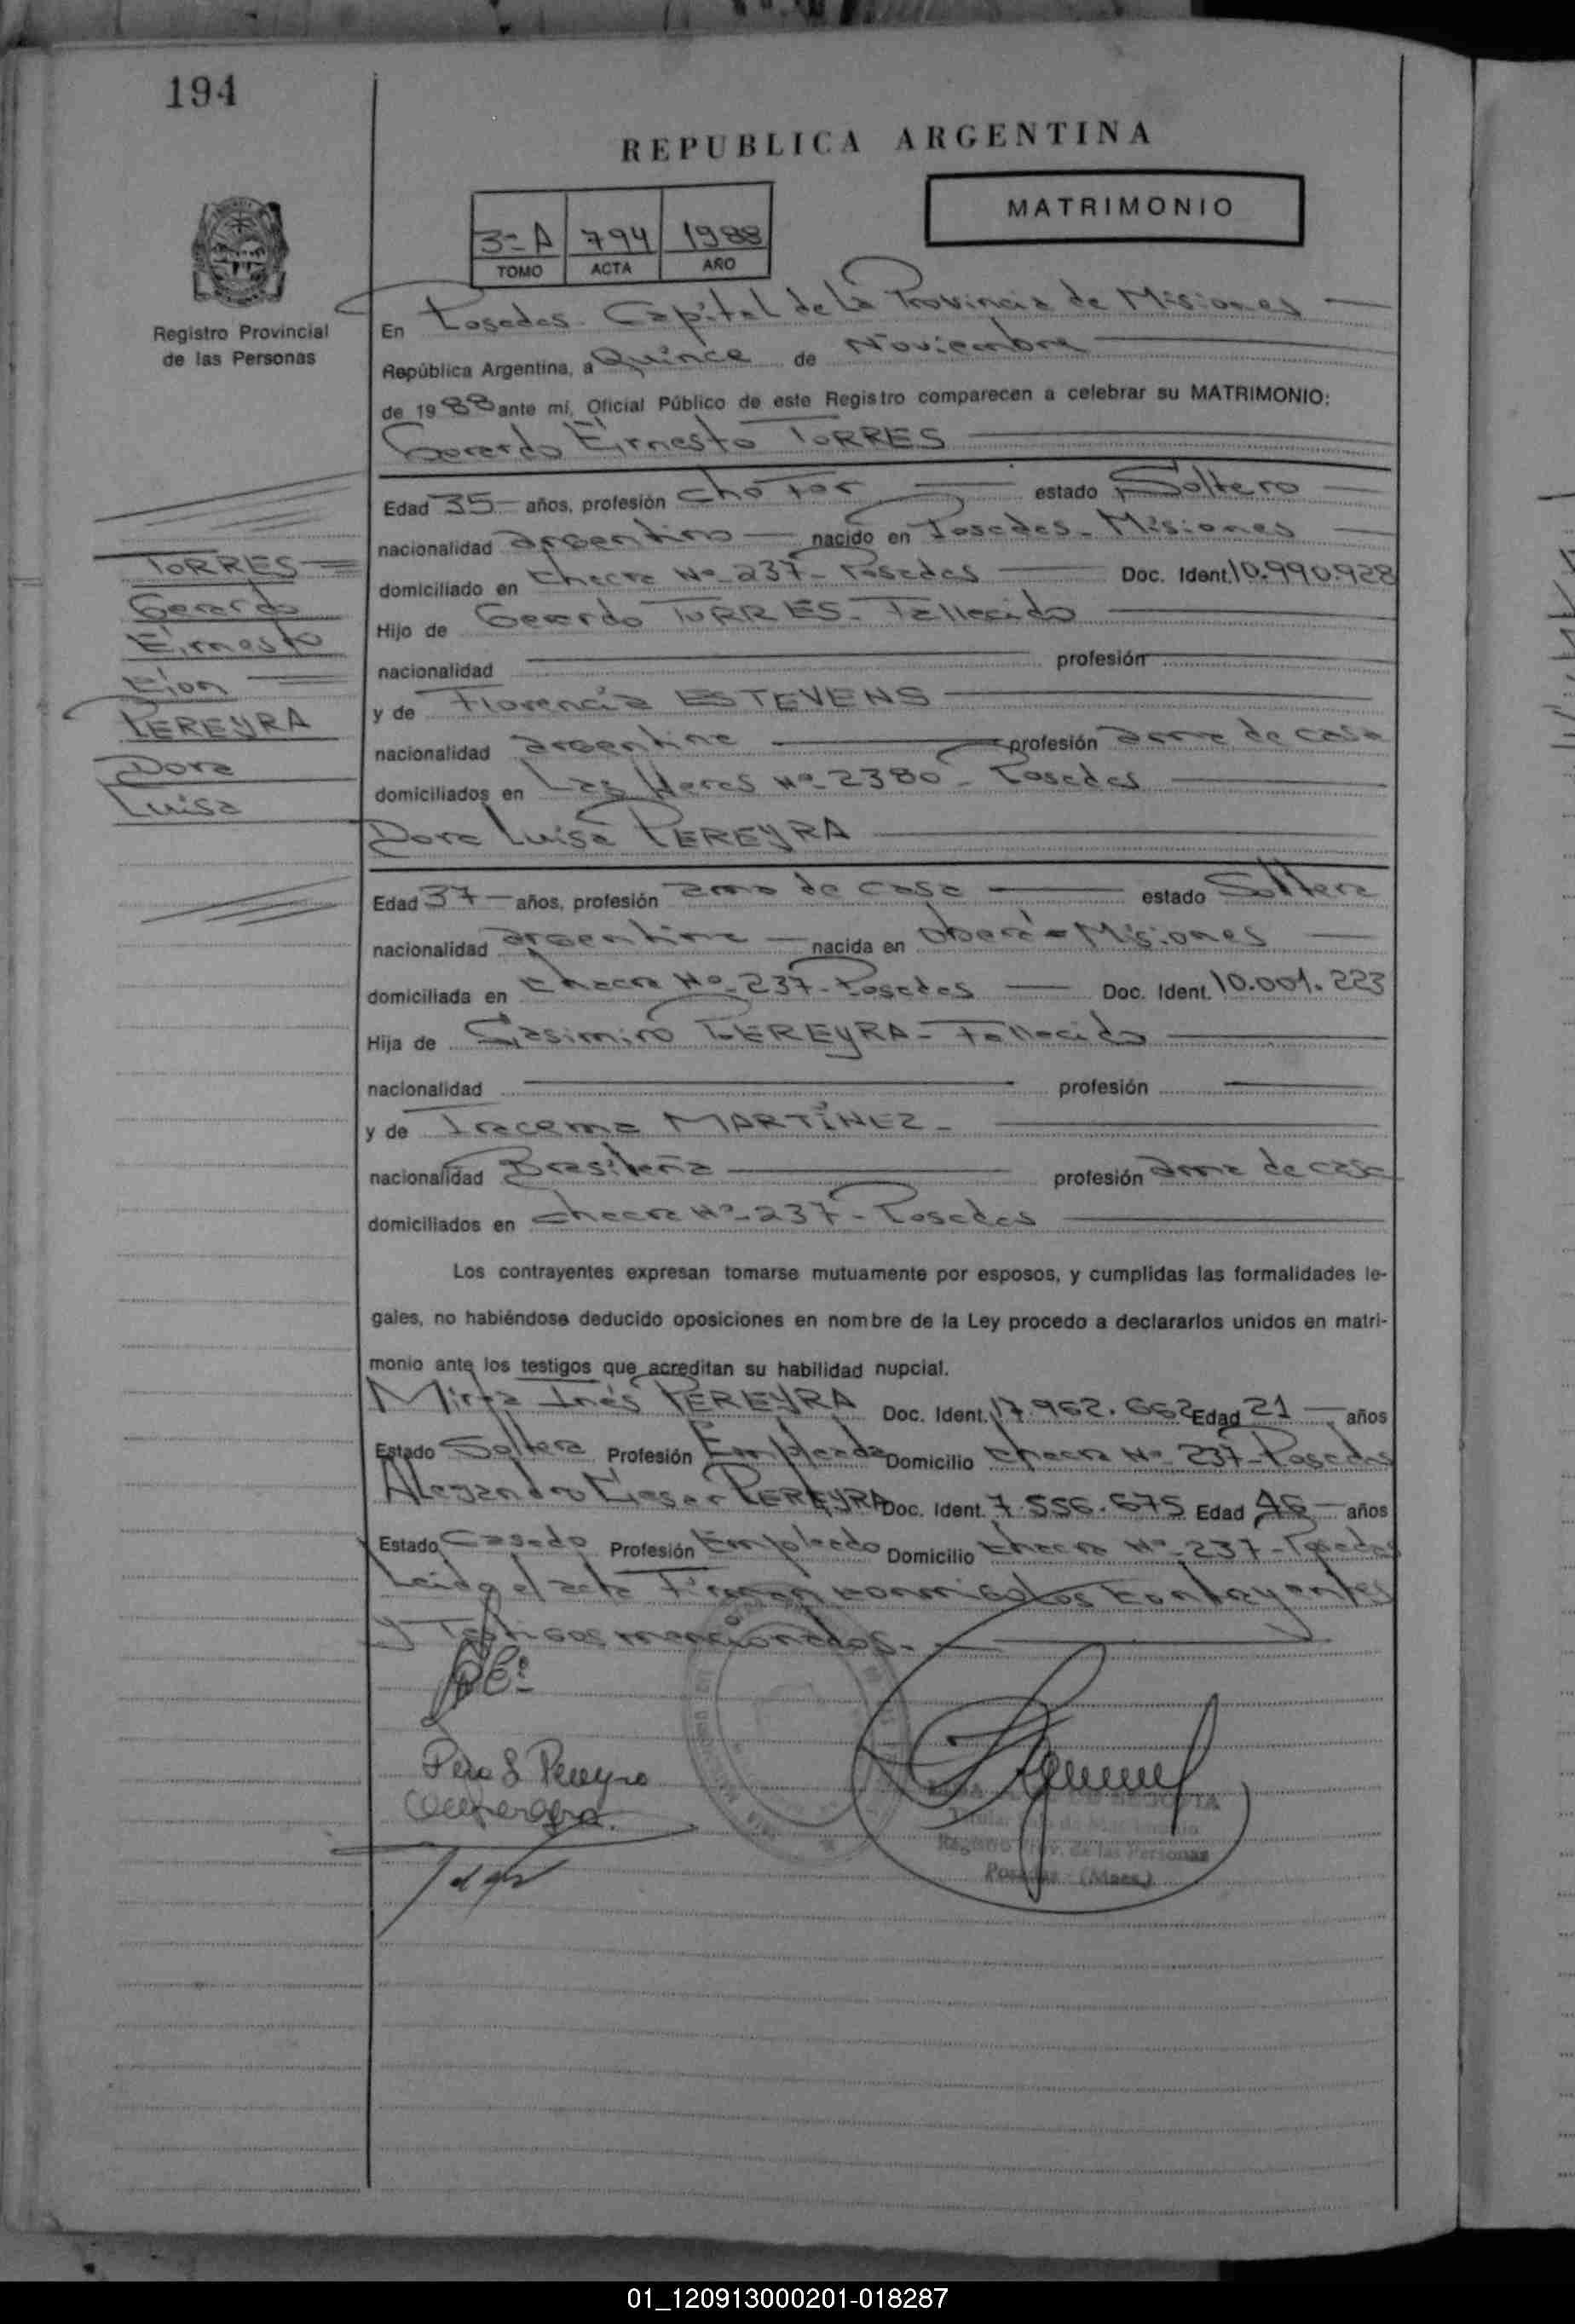 194
REPUBLICA ARGENTINA
MATRIMONIO
3º A 794 1988
TOMO ACTA AÑO
Registro Provincial
de las Personas
En Posadas - Capital de la Provincia de Misiones
República Argentina, a Quince de Noviembre
de 1988 ante mí, Oficial Público de este Registro comparecen a celebrar su MATRIMONIO:
Gerardo Ernesto TORRES
Edad 35 años, profesión Chofer estado Soltero
nacionalidad argentino nacido en Posadas - Misiones
domiciliado en Chacra Nº 237 - Posadas Doc. Ident. 10.990.928
Hijo de Gerardo TORRES - Fallecido
nacionalidad profesión
y de Florencia ESTEVENS
nacionalidad argentina profesión ama de casa
domiciliados en Las Heras Nº 2380 - Posadas
TORRES
Gerardo
Ernesto
con
PEREYRA
Dora
Luisa
Dora Luisa PEREYRA
Edad 37 años, profesión ama de casa estado Soltera
nacionalidad argentina nacida en Oberá - Misiones
domiciliada en Chacra Nº 237 - Posadas Doc. Ident. 10.001.223
Hija de Casimiro PEREYRA - Fallecido
nacionalidad profesión
y de Iracema MARTÍNEZ -
nacionalidad Brasileña profesión ama de casa
domiciliados en Chacra Nº 237 - Posadas
Los contrayentes expresan tomarse mutuamente por esposos, y cumplidas las formalidades le-
gales, no habiéndose deducido oposiciones en nombre de la Ley procedo a declararlos unidos en matri-
monio ante los testigos que acreditan su habilidad nupcial.
Mirta Inés PEREYRA Doc. Ident. 17.962.662 Edad 21 años
Estado Soltera Profesión Empleada Domicilio Chacra Nº 237 - Posadas
Alejandro Cesar PEREYRA Doc. Ident. 7.556.675 Edad 46 años
Estado Casado Profesión Empleado Domicilio Chacra Nº 237 - Posadas
Leida el acta Firman conmigo los Contrayentes
y Testigos mencionados.
Pereyra
de Matrimonio
Registro Prov. de las Personas
Posadas - (Mnes.)
01_120913000201-018287